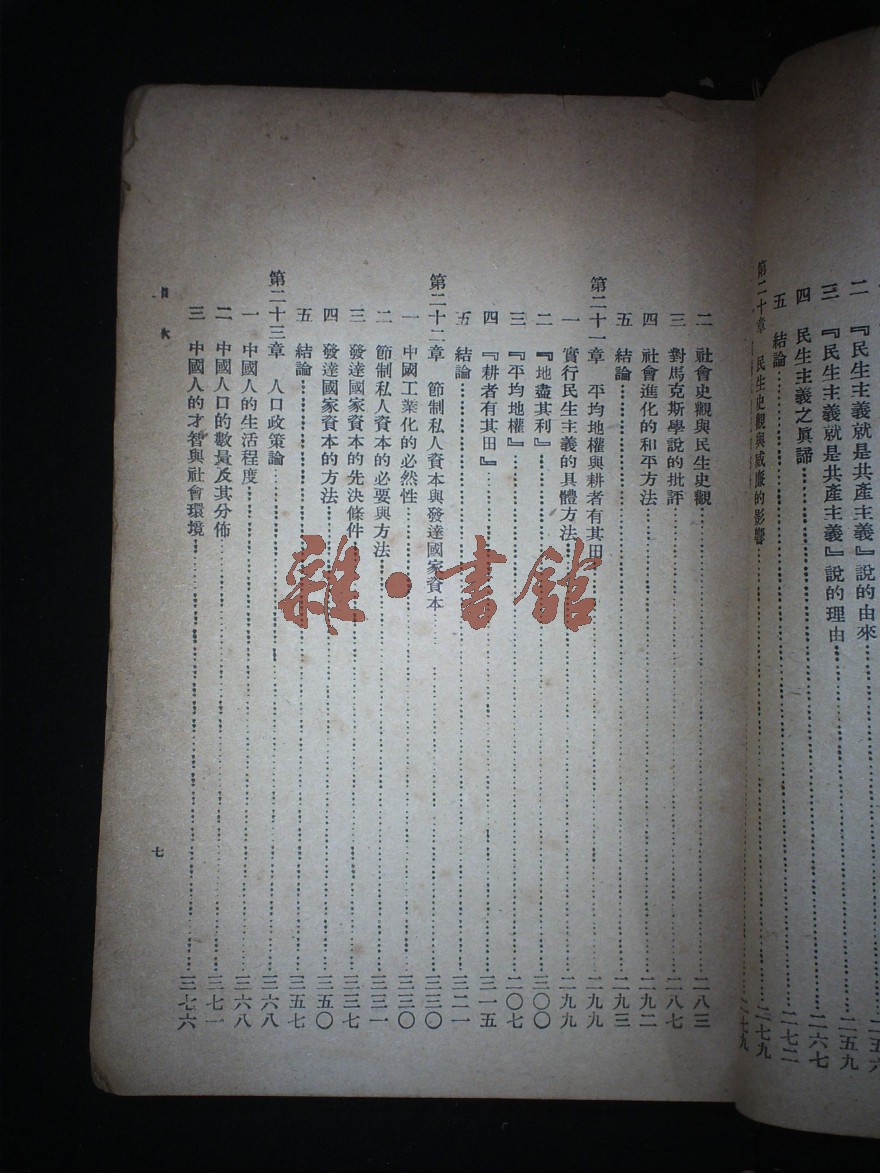 二 『民生主義就是共產主義』說的由來
三 『民生主義就是共產主義』說的理由……二五九
四 民生主義之眞諦……二六七
五 結論……二七二
第二十章 民生史觀與威廉的影響……二七九
二 社會史觀與民生史觀……二八三
三 對馬克斯學說的批評……二八七
四 社會進化的和平方法……二九二
五 結論……二九三
第二十一章 平均地權與耕者有其田……二九九
一 實行民生主義的具體方法……二九九
二 『地盡其利』……三〇〇
三 『平均地權』……三〇七
四 『耕者有其田』……三一五
五 結論……三二一
第二十二章 節制私人資本與發達國家資本……三三〇
一 中國工業化的必然性……三三〇
二 節制私人資本的必要與方法……三三一
三 發達國家資本的先決條件……三三七
四 發達國家資本的方法……三五〇
五 結論……三五七
第二十三章 人口政策論……三六八
一 中國人的生活程度……三六八
二 中國人口的數量及其分佈……三七一
三 中國人的才智與社會環境……三七六
目次
七
雜·書館